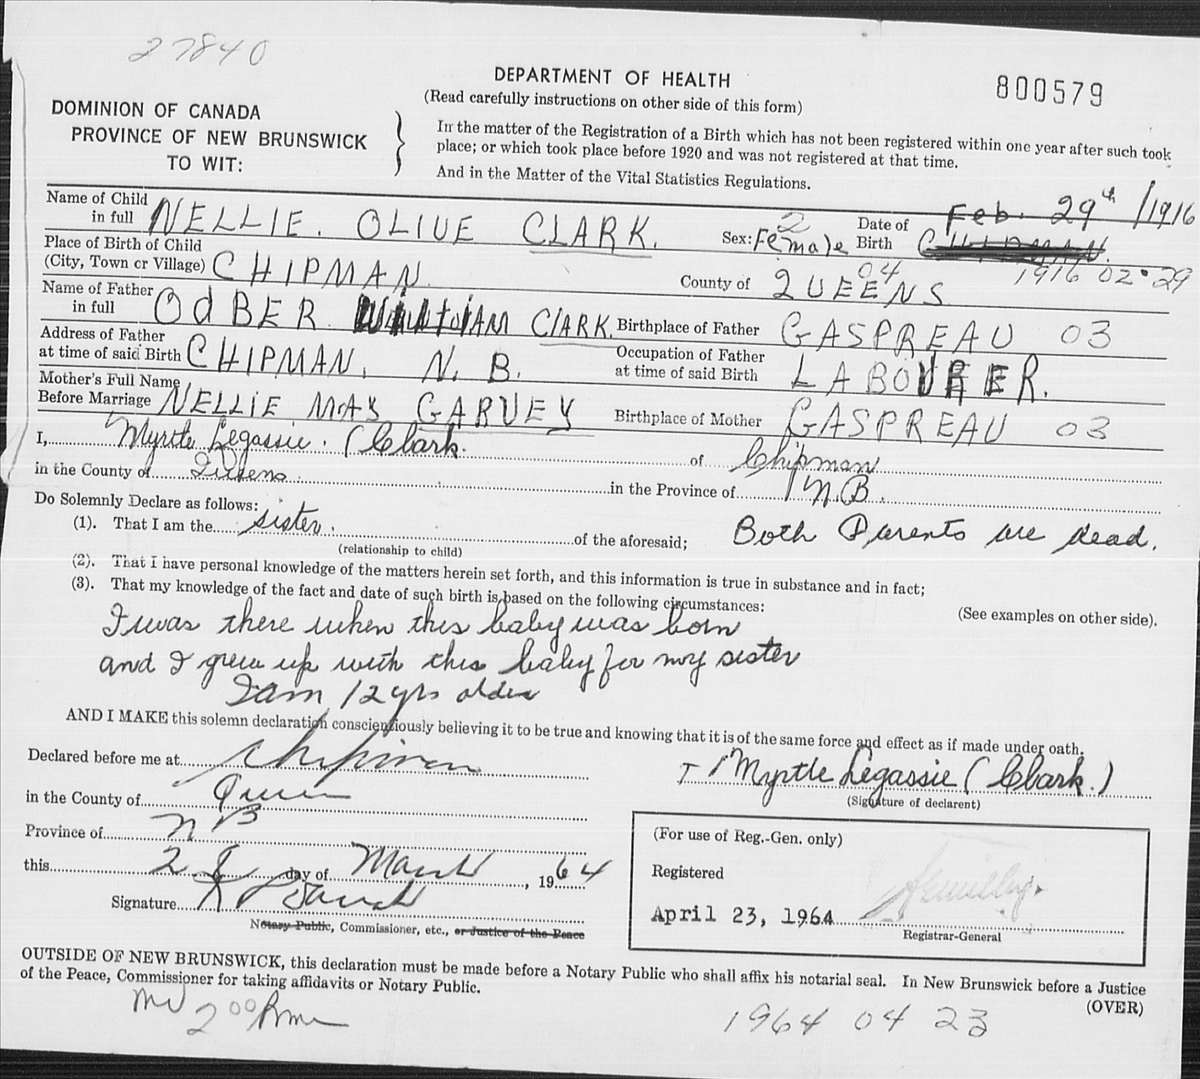 27840
DEPARTMENT OF HEALTH
800579
(Read carefully instructions on other side of this form)
DOMINION OF CANADA
PROVINCE OF NEW BRUNSWICK
TO WIT:
In the matter of the Registration of a Birth which has not been registered within one year after such took
place; or which took place before 1920 and was not registered at that time.
And in the Matter of the Vital Statistics Regulations.
Name of Child in full NELLIE. OLIVE CLARK. Sex: Female 2 Date of Birth Feb. 29th/1916
CHIPMAN.
1916 02 29
Place of Birth of Child (City, Town or Village) CHIPMAN. County of QUEENS 04
Name of Father in full OdBER WILLIAM CLARK. Birthplace of Father GASPREAU 03
Address of Father at time of said Birth CHIPMAN. N. B. Occupation of Father at time of said Birth LABOURER.
Mother's Full Name Before Marriage NELLIE MAY GARVEY Birthplace of Mother GASPREAU 03
I, Myrtle Legassie. (Clark. of Chipman
in the County of Queens. in the Province of N.B.
Do Solemnly Declare as follows:
(1). That I am the sister. of the aforesaid; Both Parents are dead.
(relationship to child)
(2). That I have personal knowledge of the matters herein set forth, and this information is true in substance and in fact;
(3). That my knowledge of the fact and date of such birth is based on the following circumstances:
(See examples on other side).
I was there when this baby was born
and I grew up with this baby for my sister
I am 12 yrs older
AND I MAKE this solemn declaration conscientiously believing it to be true and knowing that it is of the same force and effect as if made under oath.
Declared before me at Chipman
Myrtle Legassie (Clark.)
(Signature of declarent)
in the County of Queen
Province of NB
this 28 day of March, 1964
Signature
Notary Public, Commissioner, etc., or Justice of the Peace
(For use of Reg.-Gen. only)
Registered
April 23, 1964
Registrar-General
OUTSIDE OF NEW BRUNSWICK, this declaration must be made before a Notary Public who shall affix his notarial seal. In New Brunswick before a Justice
of the Peace, Commissioner for taking affidavits or Notary Public.
(OVER)
2 00
1964 04 23